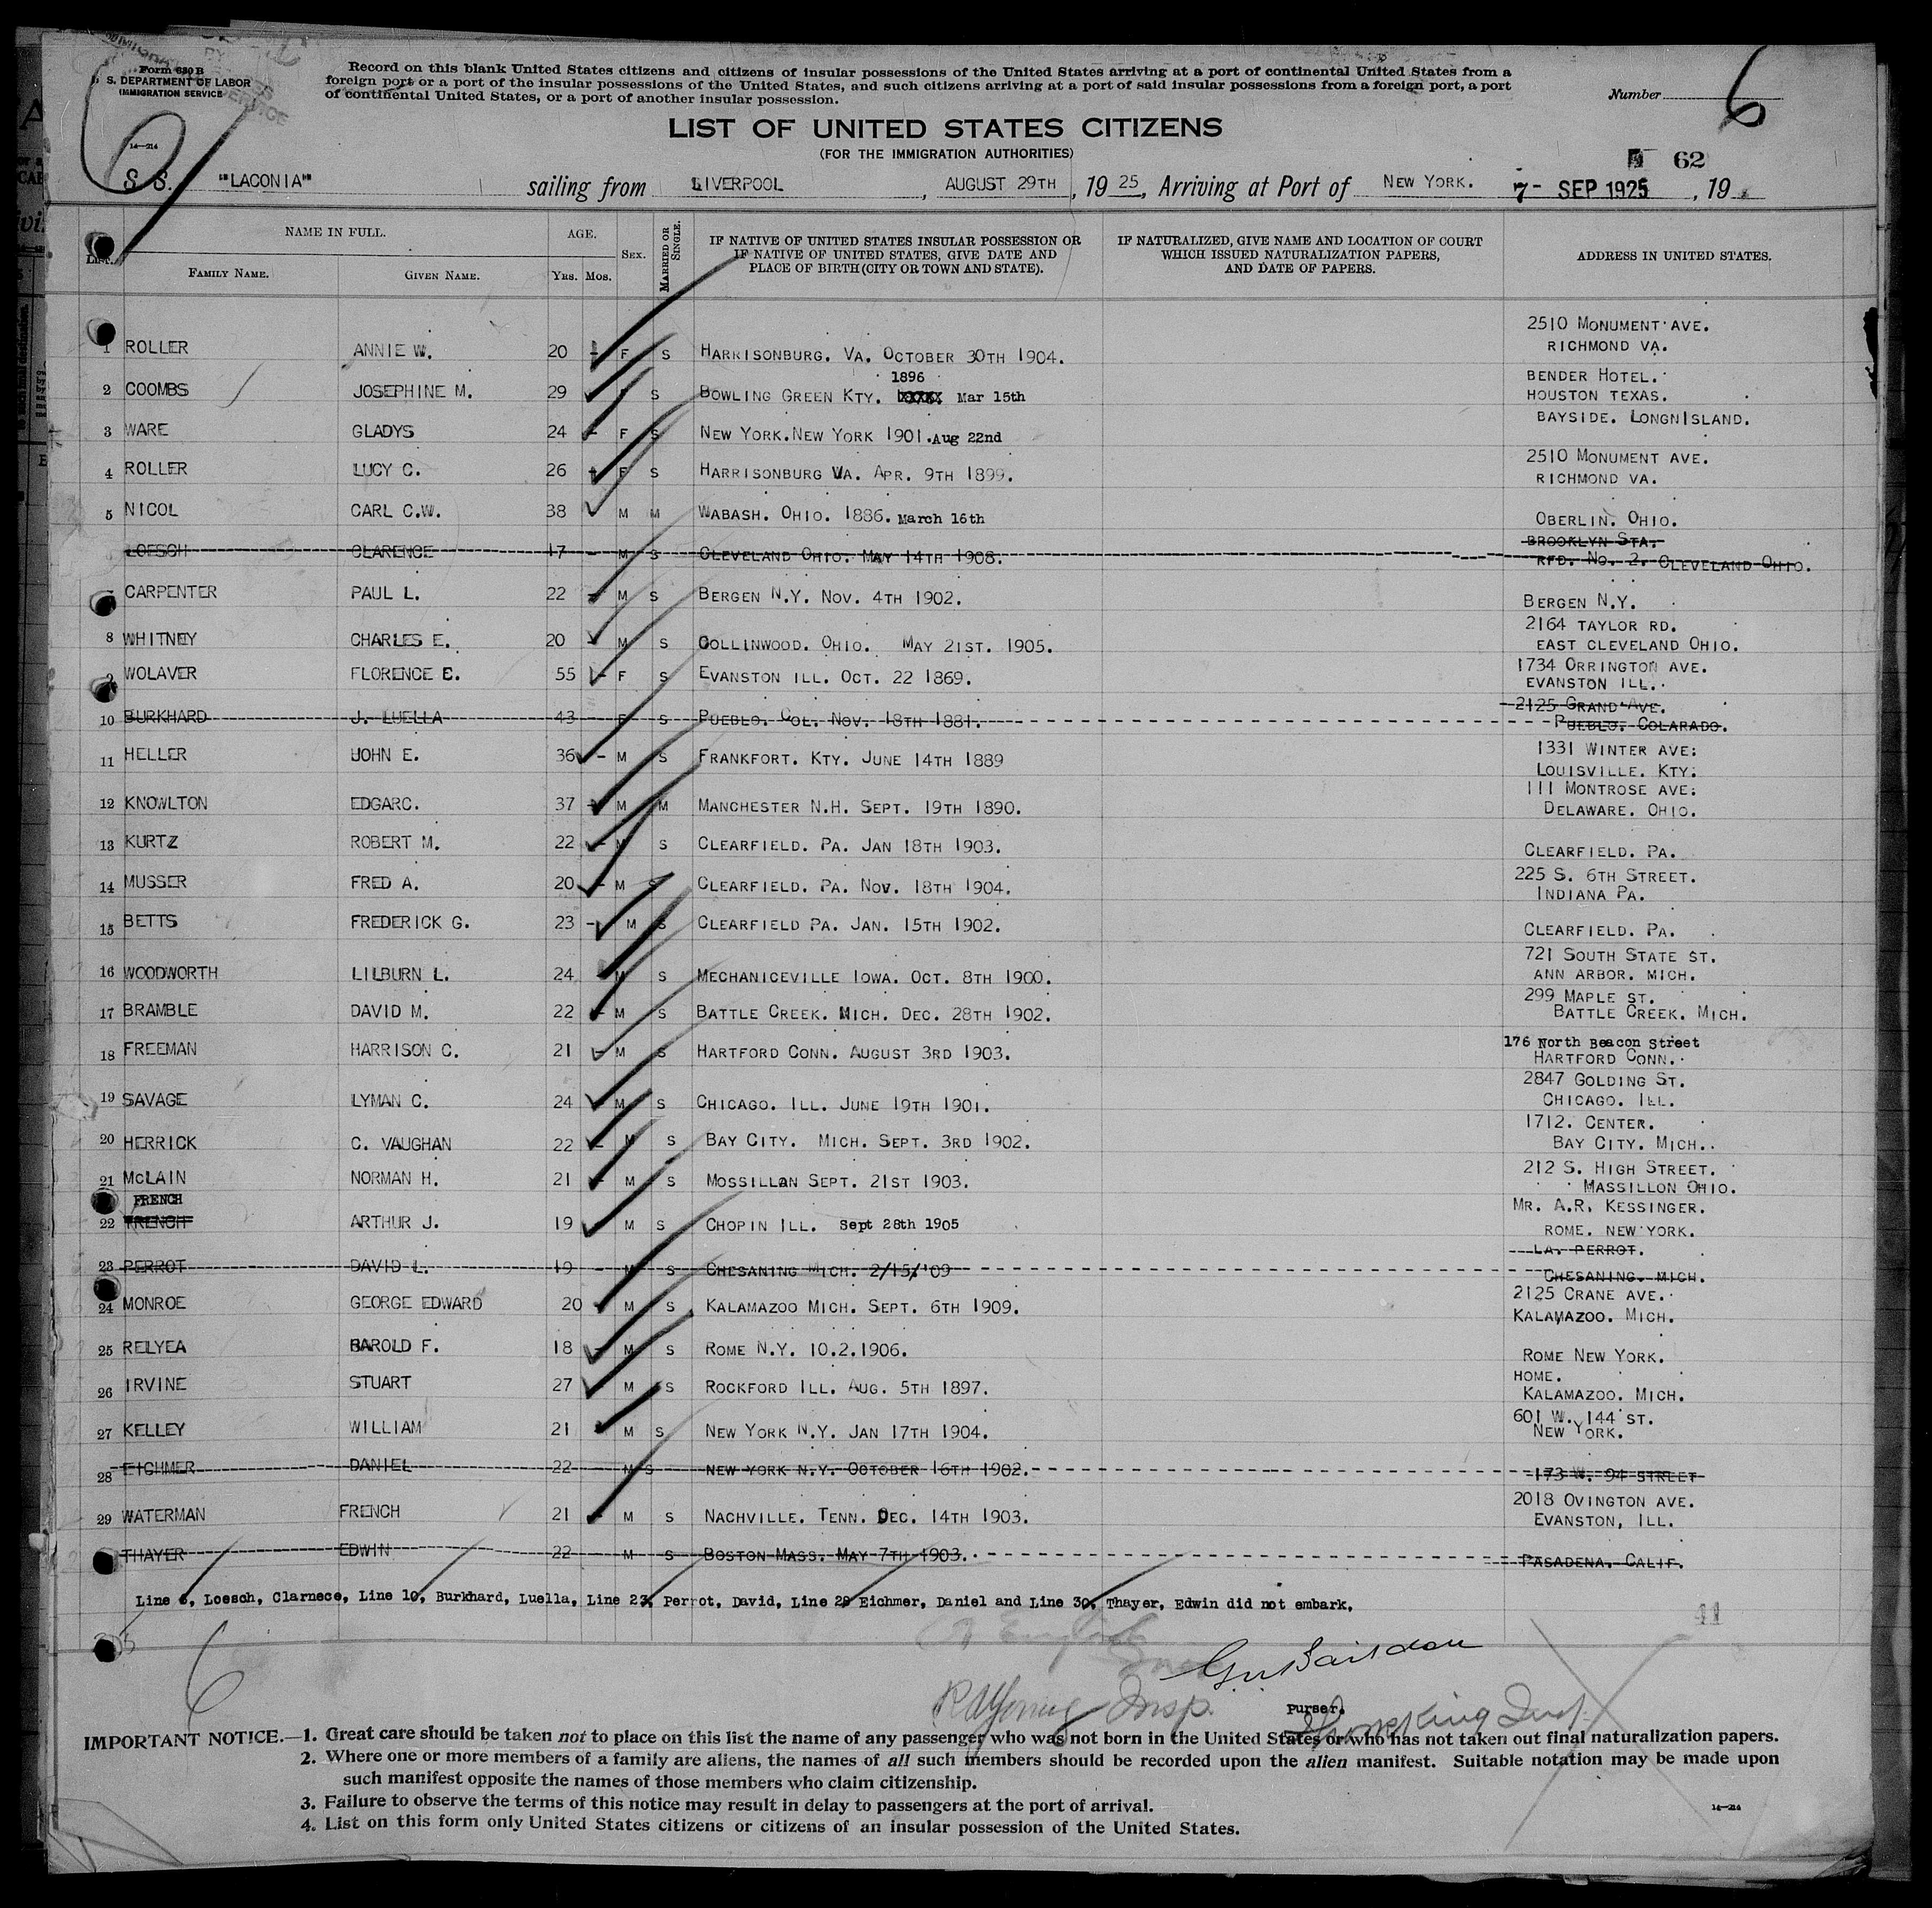 Form 630 B
U. S. DEPARTMENT OF LABOR
IMMIGRATION SERVICE
14—214
Record on this blank United States citizens and citizens of insular possessions of the United States arriving at a port of continental United States from a
foreign port or a port of the insular possessions of the United States, and such citizens arriving at a port of said insular possessions from a foreign port, a port
of continental United States, or a port of another insular possession.
Number 6
LIST OF UNITED STATES CITIZENS
(FOR THE IMMIGRATION AUTHORITIES)
62
S. S. "LACONIA" sailing from LIVERPOOL, AUGUST 29TH, 1925, Arriving at Port of NEW YORK. 7- SEP 1925, 19
NAME IN FULL. AGE. SEX. MARRIED OR SINGLE. IF NATIVE OF UNITED STATES INSULAR POSSESSION OR IF NATIVE OF UNITED STATES, GIVE DATE AND PLACE OF BIRTH (CITY OR TOWN AND STATE). IF NATURALIZED, GIVE NAME AND LOCATION OF COURT WHICH ISSUED NATURALIZATION PAPERS, AND DATE OF PAPERS. ADDRESS IN UNITED STATES.
FAMILY NAME. GIVEN NAME. Yrs. Mos.
1 ROLLER ANNIE W. 20 - F S HARRISONBURG. VA. OCTOBER 30TH 1904. 2510 MONUMENT AVE. RICHMOND VA.
2 COOMBS JOSEPHINE M. 29 F S BOWLING GREEN KTY. 1896 Mar 15th BENDER HOTEL. HOUSTON TEXAS.
3 WARE GLADYS 24 - F S NEW YORK.NEW YORK 1901.Aug 22nd BAYSIDE. LONGNISLAND.
4 ROLLER LUCY C. 26 F S HARRISONBURG VA. APR. 9TH 1899. 2510 MONUMENT AVE. RICHMOND VA.
5 NICOL CARL C.W. 38 M M WABASH. OHIO. 1886. March 16th OBERLIN. OHIO.
LOESCH CLARENCE 17 - M S CLEVELAND OHIO. MAY 14TH 1908. BROOKLYN STA. RFD. NO. 2. CLEVELAND OHIO.
CARPENTER PAUL L. 22 - M S BERGEN N.Y. NOV. 4TH 1902. BERGEN N.Y.
8 WHITNEY CHARLES E. 20 - M S COLLINWOOD. OHIO. MAY 21ST. 1905. 2164 TAYLOR RD. EAST CLEVELAND OHIO.
9 WOLAVER FLORENCE E. 55 - F S EVANSTON ILL. OCT. 22 1869. 1734 ORRINGTON AVE. EVANSTON ILL.
10 BURKHARD J. LUELLA 43 F S PUEBLO. COL. NOV. 18TH 1881. 2125 GRAND AVE. PUEBLO. COLARADO.
11 HELLER JOHN E. 36 - M S FRANKFORT. KTY. JUNE 14TH 1889 1331 WINTER AVE: LOUISVILLE. KTY:
12 KNOWLTON EDGARC. 37 - M M MANCHESTER N.H. SEPT. 19TH 1890. 111 MONTROSE AVE: DELAWARE. OHIO.
13 KURTZ ROBERT M. 22 - M S CLEARFIELD. PA. JAN 18TH 1903. CLEARFIELD. PA.
14 MUSSER FRED A. 20 - M S CLEARFIELD. PA. NOV. 18TH 1904. 225 S. 6TH STREET. INDIANA PA.
15 BETTS FREDERICK G. 23 - M S CLEARFIELD PA. JAN. 15TH 1902. CLEARFIELD. PA.
16 WOODWORTH LILBURN L. 24 M S MECHANICEVILLE IOWA. OCT. 8TH 1900. 721 SOUTH STATE ST. ANN ARBOR. MICH.
17 BRAMBLE DAVID M. 22 - M S BATTLE CREEK. MICH. DEC. 28TH 1902. 299 MAPLE ST. BATTLE CREEK. MICH.
18 FREEMAN HARRISON C. 21 - M S HARTFORD CONN. AUGUST 3RD 1903. 176 North Beacon Street HARTFORD CONN.
19 SAVAGE LYMAN C. 24 - M S CHICAGO. ILL. JUNE 19TH 1901. 2847 GOLDING ST. CHICAGO. ILL.
20 HERRICK C. VAUGHAN 22 - M S BAY CITY. MICH. SEPT. 3RD 1902. 1712. CENTER. BAY CITY. MICH..
21 McLAIN NORMAN H. 21 - M S MOSSILLON SEPT. 21ST 1903. 212 S. HIGH STREET. MASSILLON OHIO.
FRENCH
22 TRENCH ARTHUR J. 19 M S CHOPIN ILL. Sept 28th 1905 MR. A.R. KESSINGER. ROME. NEW YORK.
23 PERROT DAVID L. 19 - M S CHESANING MICH. 2/15/'09 LA. PERROT. CHESANING. MICH.
24 MONROE GEORGE EDWARD 20 - M S KALAMAZOO MICH. SEPT. 6TH 1909. 2125 CRANE AVE. KALAMAZOO. MICH.
25 RELYEA HAROLD F. 18 - M S ROME N.Y. 10.2.1906. ROME NEW YORK.
26 IRVINE STUART 27 M S ROCKFORD ILL. AUG. 5TH 1897. HOME. KALAMAZOO. MICH.
27 KELLEY WILLIAM 21 M S NEW YORK N.Y. JAN 17TH 1904. 601 W. 144 ST. NEW YORK.
28 EICHMER DANIEL 22 M S NEW YORK N.Y. OCTOBER 16TH 1902. 173 W. 94 STREET
29 WATERMAN FRENCH 21 - M S NACHVILLE. TENN. DEC. 14TH 1903. 2018 OVINGTON AVE. EVANSTON, ILL.
THAYER EDWIN 22 M S BOSTON MASS. MAY 7TH 1903. PASADENA. CALIF.
Line 6, Loesch, Clarnece, Line 10, Burkhard, Luella, Line 23, Perrot, David, Line 28 Eichmer, Daniel and Line 30, Thayer, Edwin did not embark,
41
6
Insp.
Purser.
IMPORTANT NOTICE.—1. Great care should be taken not to place on this list the name of any passenger who was not born in the United States or who has not taken out final naturalization papers.
2. Where one or more members of a family are aliens, the names of all such members should be recorded upon the alien manifest. Suitable notation may be made upon
such manifest opposite the names of those members who claim citizenship.
3. Failure to observe the terms of this notice may result in delay to passengers at the port of arrival.
4. List on this form only United States citizens or citizens of an insular possession of the United States.
14—214